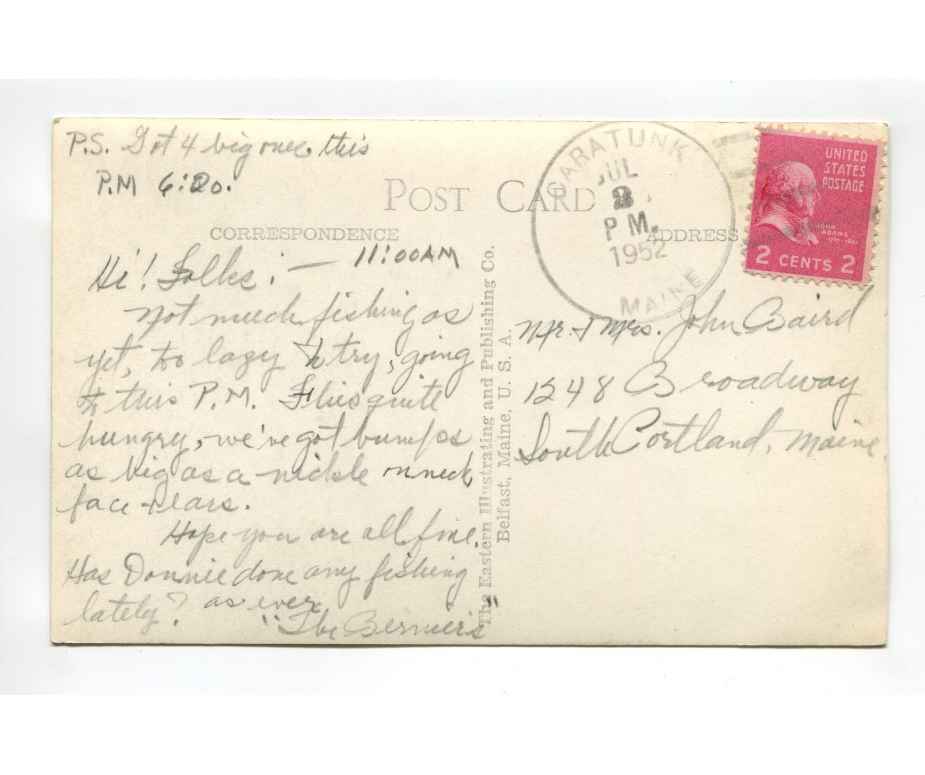 P.S. Got 4 big ones this
P.M 6:20.
POST CARD
CORRESPONDENCE
ADDRESS
CARATUNK
JUL
2
P M.
1952
MAINE
UNITED
STATES
POSTAGE
JOHN
ADAMS
2 CENTS 2
Hi! Folks: — 11:00AM
Not much fishing as
yet, to lazy to try, going
to this P.M. Flies quite
hungry, we've got bumps
as big as a nickle on neck
face + ears.
Hope you are all fine.
Has Donnie done any fishing
lately? as ever
"The Bernier's"
The Eastern Illustrating and Publishing Co.
Belfast, Maine, U. S. A.
Mr. + Mrs. John Baird
1248 Broadway
South Cortland, Maine.